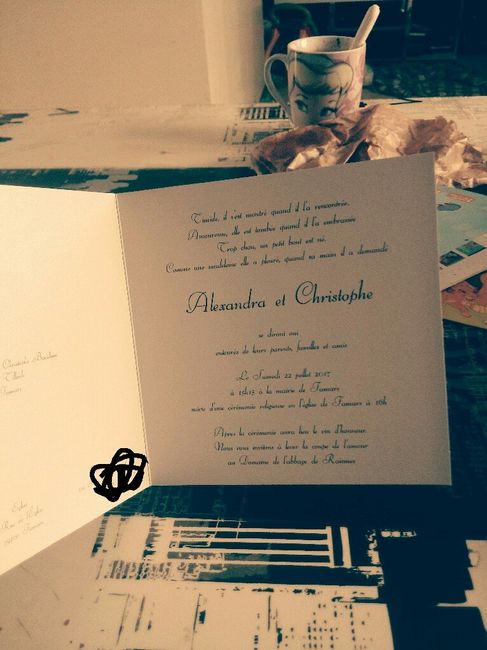 Timide, il s'est montré quand il l'a rencontrée,
Amoureuse, elle est tombée quand il l'a embrassée
Trop chou, un petit bout est né,
Comme une madeleine elle a pleuré, quand sa main il a demandé
Alexandra et Christophe
se diront oui
entourés de leurs parents, familles et amis
Le Samedi 22 juillet 2017
à 15h15 à la mairie de Famars
suivie d'une cérémonie religieuse en l'église de Famars à 16h
Après la cérémonie aura lieu le vin d'honneur.
Nous vous invitons à lever la coupe de l'amour
au Domaine de l'abbaye de Raismes
Christophe
Famars
Eglise
Rue de
Famars